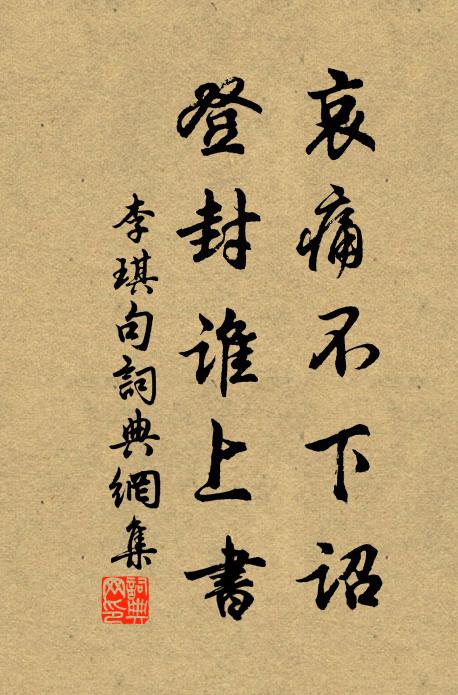 哀痛不下詔
登封誰上書
李琪句詞典網集
詞典网印